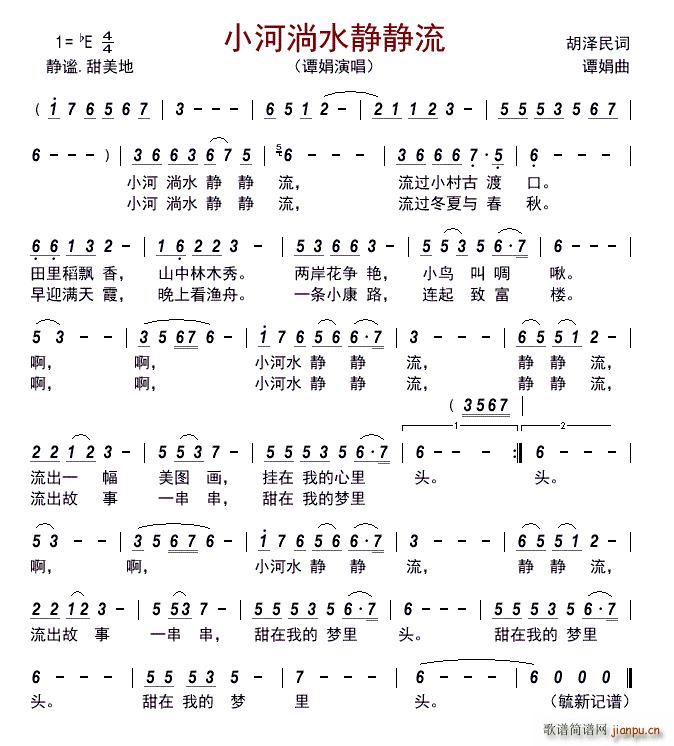 小河淌水静静流
1= ♭E 4/4
胡泽民词
静谧.甜美地
（谭娟演唱）
谭娟曲
( 1 7 6 5 6 7 | 3 - - - | 6 5 1 2 - | 2 1 1 2 3 - | 5 5 5 3 5 6 7 |
6 - - ) | 3 6 6 3 6 7 5 | 5 6 - - - | 3 6 6 6 6 7 · 5 | 6 - - - |
小河 淌水 静 静 流， 流过小村古 渡 口。
小河 淌水 静 静 流， 流过冬夏与 春 秋。
6 6 1 3 2 - | 1 6 2 2 3 - | 5 3 6 6 3 - | 5 5 3 5 6 · 7 | 5 - - - |
田里稻飘 香， 山中林木秀。 两岸花争 艳， 小鸟 叫 啁 啾。
早迎满天 霞， 晚上看渔舟。 一条小康 路， 连起 致 富 楼。
5 3 - - | 3 5 6 7 6 - | 1 7 6 5 6 6 · 7 | 3 - - - | 6 5 5 1 2 - - |
啊， 啊， 小河水 静 静 流， 静 静 流，
啊， 啊， 小河水 静 静 流， 静 静 流，
( 3 5 6 7 |
1 2
2 2 1 2 3 - | 5 5 3 7 - | 5 5 5 3 5 6 · 7 | 6 - - :| 6 - - |
流出一 幅 美图 画， 挂在 我的心里 头。 头。
流出故 事 一串 串， 甜在 我的梦里
5 3 - - | 3 5 6 7 6 - | 1 7 6 5 6 6 · 7 | 3 - - - | 5 5 5 1 2 - - |
啊， 啊， 小河水 静 静 流， 静 静 流，
2 2 1 2 3 - | 5 5 3 7 - | 5 5 5 3 5 6 · 7 | 6 - - - | 5 5 5 3 5 6 · 7 |
流出故 事 一串 串， 甜在我的 梦里 头。 甜在我的 梦里
6 - - - | 5 5 5 3 5 - | 7 - - - | 6 - - - | 6 0 0 0 ‖
头。 甜在 我的 梦 里 头。 （毓新记谱）
歌谱简谱网
jianpu.cn